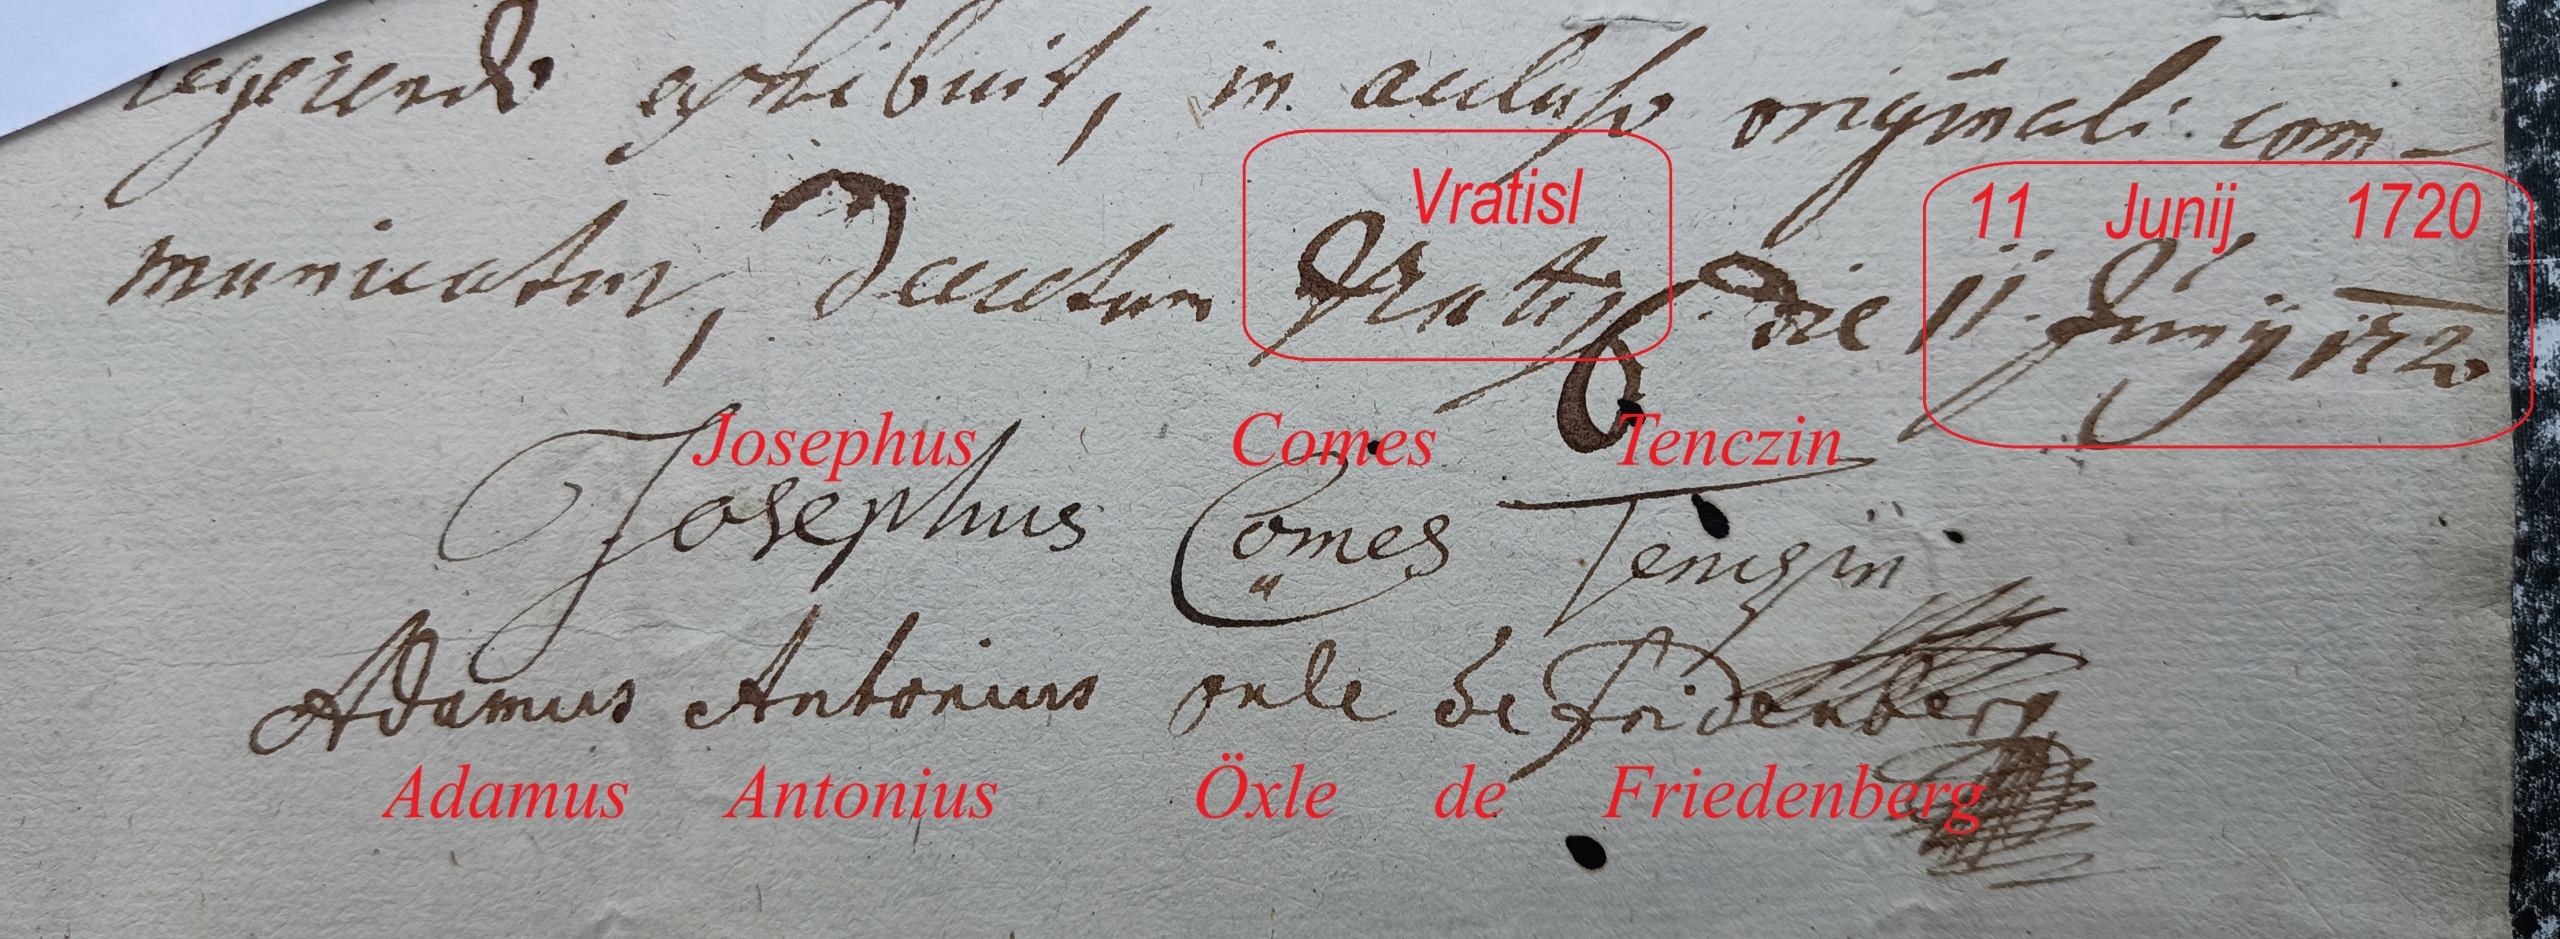 regerendo exhibuit, in aclusso originali com-
Vratisl
11 Junij 1720
municatur, Decretum Vratisl. die 11. Junij 1720
Josephus Comes Tenczin
Josephus Comes Tenczin
Adamus Antonius Öxle de Fridenberg
Adamus Antonius Öxle de Friedenberg